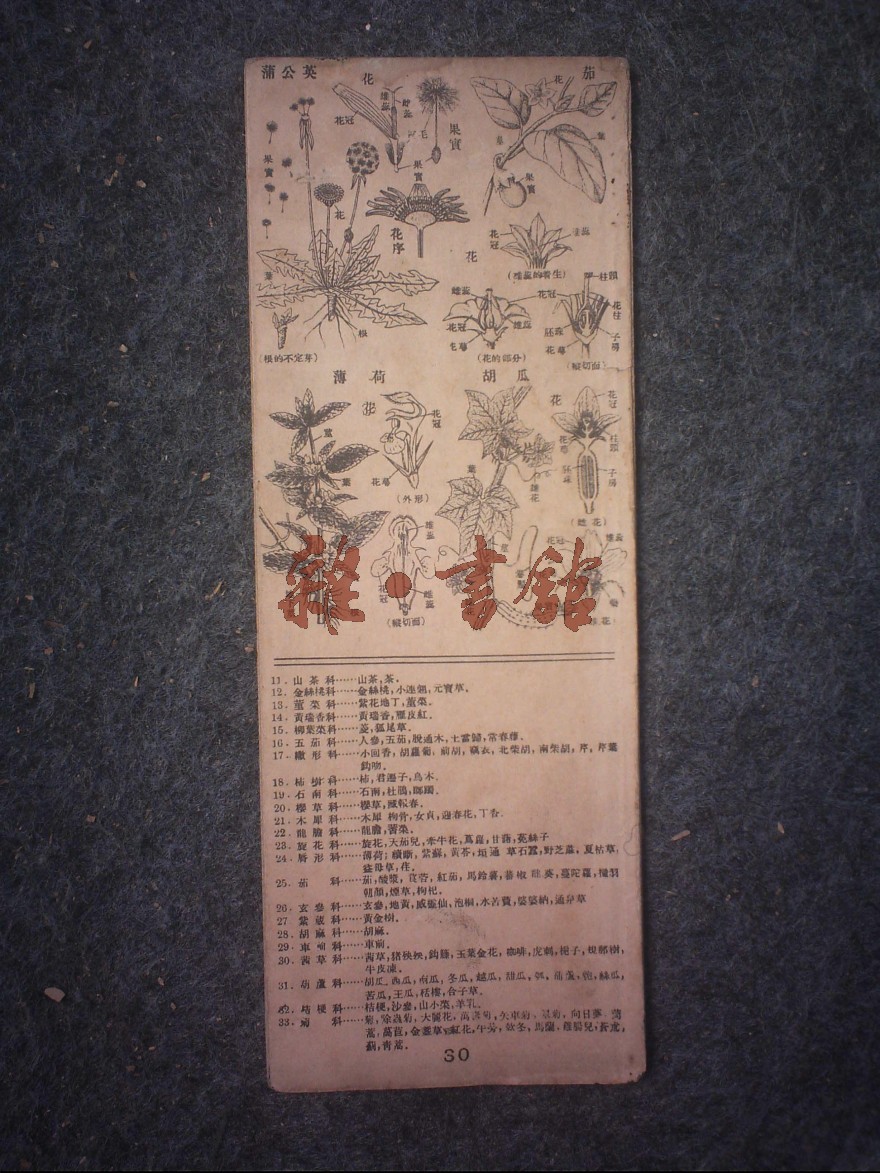 蒲公英
花
雄蕊
花冠
毛
果實
果實
果實
花
花序
葉
根
(根的不定芽)
茄
花
葉
果實
花
花冠
柱頭
雌蕊
花冠
花柱
花冠
雄蕊
胚珠
子房
花萼
(花的部分)
(縱切面)
薄荷
花
花冠
莖
葉
花萼
(外形)
雄蕊
花冠
雌蕊
(縱切面)
胡瓜
花
花冠
柱頭
花萼
葉
胚珠
子房
雄花
(雌花)
花冠
雄蕊
雜·書館
11. 山茶科……山茶,茶.
12. 金絲桃科……金絲桃,小連翹,元寶草.
13. 菫菜科……紫花地丁,菫菜.
14. 黃瑞香科……黃瑞香,雁皮紅.
15. 柳葉菜科……菱,狐尾草.
16. 五茄科……人參,五茄,脫通木,土當歸,常春藤.
17. 繖形科……小囘香,胡蘿蔔,前胡,竊衣,北柴胡,南柴胡,芹,芹葉
鈎吻.
18. 柿樹科……柿,君遷子,烏木.
19. 石南科……石南,杜鵑,躑躅.
20. 櫻草科……櫻草,報春.
21. 木犀科……木犀,枸骨,女貞,迎春花,丁香.
22. 龍膽科……龍膽,莕菜.
23. 旋花科……旋花,天茄兒,牽牛花,蔦蘿,甘藷,菟絲子
24. 唇形科……薄荷,續斷,紫蘇,黃芩,草石蠶,野芝蔴,夏枯草,
益母草,荏.
25. 茄科……茄,酸漿,莨菪,紅茄,馬鈴薯,蕃椒,龍葵,曼陀羅,
朝顏,煙草,枸杞.
26. 玄參科……玄參,地黃,威靈仙,泡桐,水苦蕒,婆婆納,通泉草
27 紫葳科……黃金樹.
28. 胡麻科……胡麻.
29. 車前科……車前.
30. 茜草科……茜草,猪殃殃,鈎藤,玉葉金花,咖啡,虎刺,梔子,規那樹,
牛皮凍.
31. 葫蘆科……胡瓜,西瓜,南瓜,冬瓜,越瓜,甜瓜,瓠,葫蘆,匏,絲瓜,
苦瓜,王瓜,栝樓,合子草.
32. 桔梗科……桔梗,沙參,山小菜,羊乳.
33. 菊科……菊,除蟲菊,大麗花,萬壽菊,矢車菊,向日葵,
萵苣,金盞草,紅花,牛蒡,款冬,馬蘭,雞腸兒,蒼朮,
薊,靑蒿.
30